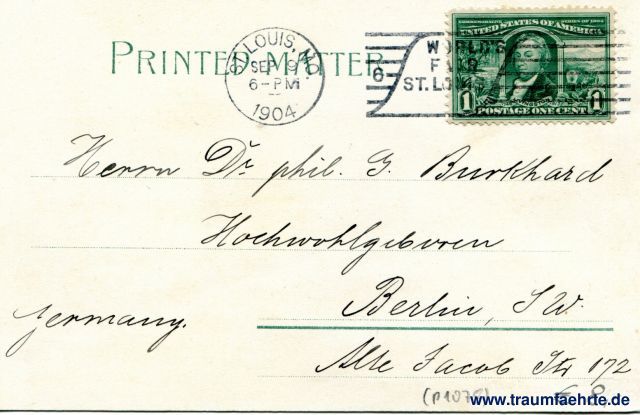 PRINTED MATTER
ST. LOUIS, MO.
SEP 9
6-PM
1904
6
WORLD'S
FAIR
ST. LOUIS
COMMEMORATIVE SERIES OF 1904
UNITED STATES OF AMERICA
1 1
POSTAGE ONE CENT
Herrn Dr. phil. G. Burkhard
Hochwohlgeboren
Berlin, SW.
Germany.
Alte Jacob Str 172
www.traumfaehrte.de